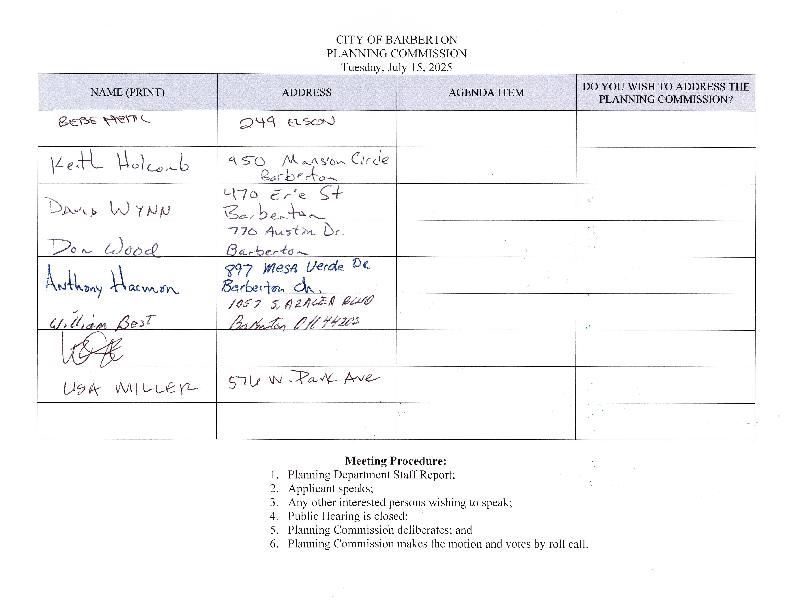 CITY OF BARBERTON
PLANNING COMMISSION
Tuesday, July 15, 2025
NAME (PRINT) ADDRESS AGENDA ITEM DO YOU WISH TO ADDRESS THE PLANNING COMMISSION?
BEBE 249 ELSON
Keith Holcomb 950 Mansion Circle
Barberton
David WYNN 470 Erie St
Barberton
Don Wood 770 Austin Dr.
Barberton
Anthony Harmon 897 Mesa Verde Dr
Barberton Oh.
William Best 1057 S. AZALEA BLVD
Barberton OH 44203
LISA MILLER 576 W. Park Ave
Meeting Procedure:
1. Planning Department Staff Report;
2. Applicant speaks;
3. Any other interested persons wishing to speak;
4. Public Hearing is closed;
5. Planning Commission deliberates; and
6. Planning Commission makes the motion and votes by roll call.